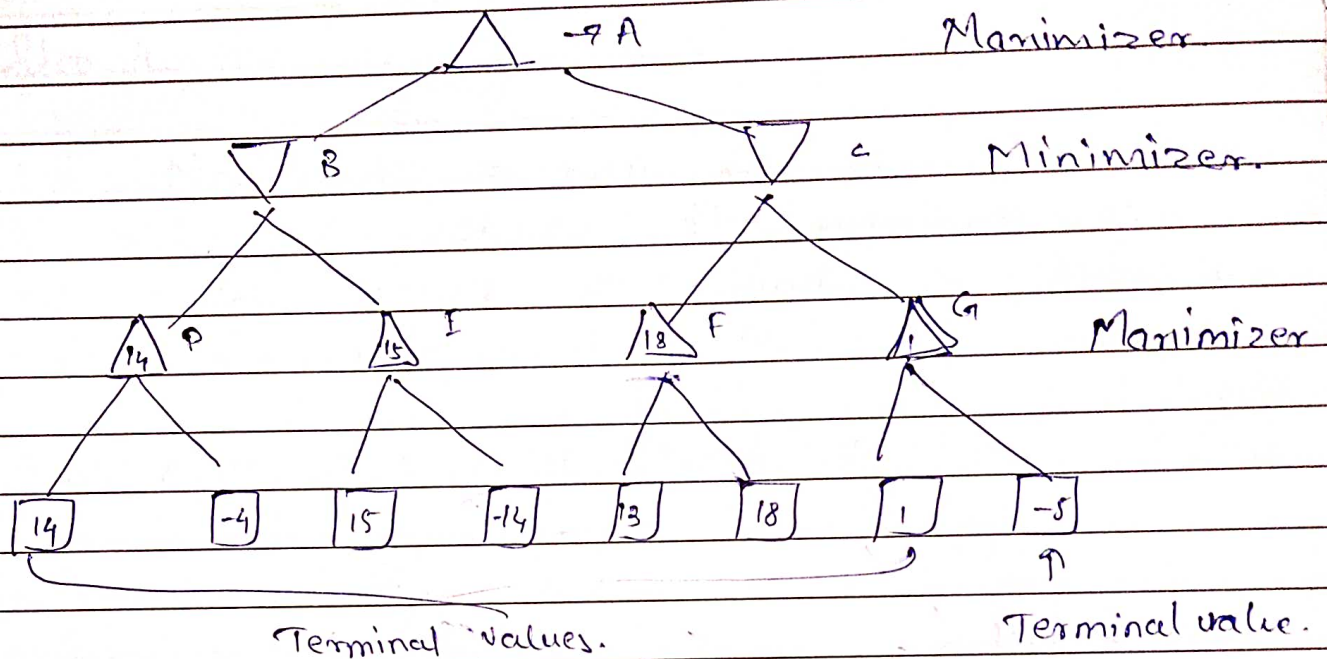 → A Maximizer
B C Minimizer.
14 D 15 I 18 F 1 G Maximizer
14 -4 15 -14 13 18 1 -5
Terminal values. Terminal value.